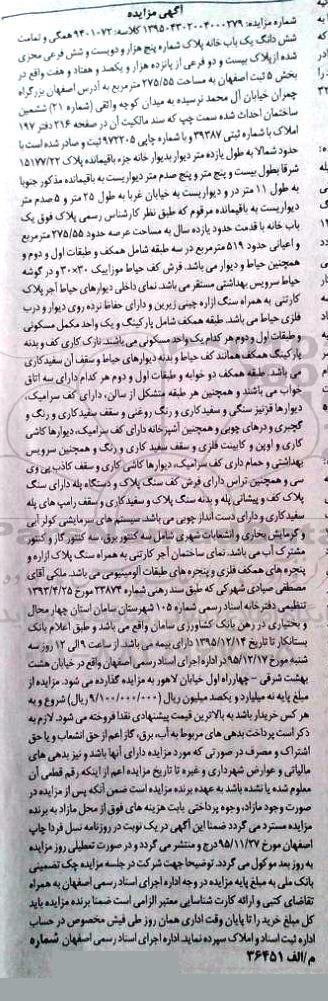 آگهی مزایده
شماره مزایده: ۱۳۹۵۰۴۳۰۲۰۰۴۰۰۰۲۷۹ کلاسه: ۹۴۰۱۰۷۲ همگی و تمامت
شش دانگ یک باب خانه پلاک شماره پنج هزار و دویست و شش فرعی مجزی
شده از پلاک بیست و دو فرعی از پانزده هزار و یکصد و هفتاد و هفت واقع در
بخش ۵ ثبت اصفهان به مساحت ۲۷۵/۵۵ مترمربع به آدرس اصفهان بزرگراه
چمران خیابان آل محمد نرسیده به میدان کوچه واثقی (شماره ۲۱) ششمین
ساختمان احداث شده سمت چپ که سند مالکیت آن در صفحه ۲۱۶ دفتر ۱۹۷
املاک با شماره ثبتی ۳۹۳۸۷ و با شماره چاپی ۹۷۲۲۰۵ ثبت و صادر شده است با
حدود شمالا به طول یازده متر دیوار به دیوار خانه جزء باقیمانده پلاک ۱۵۱۷۷/۲۲
شرقا بطول بیست و پنج متر و پنج صدم متر دیواریست به باقیمانده مذکور جنوبا
به طول ۱۱ متر در و دیواریست به خیابان غربا به طول ۲۵ متر و ۵ صدم متر
دیواریست به باقیمانده مرقوم که طبق نظر کارشناس رسمی پلاک فوق یک
باب خانه با قدمت حدود یازده سال به مساحت عرصه حدود ۲۷۵/۵۵ مترمربع
و اعیانی حدود ۵۱۹ مترمربع در سه طبقه شامل همکف و طبقات اول و دوم و
همچنین حیاط و دیوار می باشد. فرش کف حیاط موزاییک ۳۰×۳۰ و در گوشه
حیاط سرویس بهداشتی مستقر می باشد. نمای داخلی دیوارهای حیاط آجر پلاک
کارتنی به همراه سنگ ازاره چینی زیرین و دارای حفاظ نرده روی دیوار و درب
فلزی حیاط می باشد. طبقه همکف شامل پارکینگ و یک واحد مکمل مسکونی
و طبقات اول و دوم هر کدام یک واحد مسکونی می باشند. نازک کاری کف و بدنه
پارکینگ همکف همانند کف حیاط و بدنه دیوارهای حیاط و سقف آن سفیدکاری
می باشد. طبقه همکف دو خوابه و طبقات اول و دوم هر کدام دارای سه اتاق
خواب می باشند و همچنین هر طبقه متشکل از سالن، دارای کف سرامیک،
دیوارها قرنیز سنگی و سفیدکاری و رنگ روغنی و سقف سفیدکاری و رنگ و
گچبری و درهای چوبی و همچنین آشپزخانه دارای کف سرامیک، دیوارها کاشی
کاری و اوپن و کابینت فلزی و سقف سفید کاری و رنگ و همچنین سرویس
بهداشتی و حمام داری کف سرامیک، دیوارها کاشی کاری و سقف کاذب پی وی
سی و همچنین تراس دارای فرش کف سنگ پلاک و دستگاه پله دارای سنگ
پلاک کف و پیشانی پله و بدنه سنگ پلاک و سفیدکاری و سقف رامپ های پله
سفیدکاری و دارای دست انداز چوبی می باشد. سیستم های سرمایشی کولر آبی
و گرمایش بخاری و انشعابات شهری شامل سه کنتور برق، سه کنتور گاز و کنتور
مشترک آب می باشد. نمای ساختمان آجر کارتنی به همراه سنگ پلاک ازاره و
پنجره های همکف فلزی و پنجره های طبقات آلومینیومی می باشد. ملکی آقای
مصطفی صیادی شهرکی که طبق سند رهنی شماره ۲۳۸۷۳ مورخ ۱۳۹۳/۴/۲۵
تنظیمی دفترخانه اسناد رسمی شماره ۱۰۵ شهرستان سامان استان چهار محال
و بختیاری در رهن بانک کشاورزی سامان واقع می باشد و طبق اعلام بانک
بستانکار تا تاریخ ۱۳۹۵/۱۲/۱۴ دارای بیمه می باشد. از ساعت ۹ الی ۱۲ روز سه
شنبه مورخ ۹۵/۱۲/۱۷ در اداره اجرای اسناد رسمی اصفهان واقع در خیابان هشت
بهشت شرقی - چهارراه اول خیابان لاهور به مزایده گذارده می شود. مزایده از
مبلغ پایه نه میلیارد و یکصد میلیون ریال (۹/۱۰۰/۰۰۰/۰۰۰ ریال) شروع و به
هر کس خریدار باشد به بالاترین قیمت پیشنهادی نقدا فروخته می شود. لازم به
ذکر است پرداخت بدهی های مربوط به آب، برق، گاز اعم از حق انشعاب و یا حق
اشتراک و مصرف در صورتی که مورد مزایده دارای آنها باشد و نیز بدهی های
مالیاتی و عوارض شهرداری و غیره تا تاریخ مزایده اعم از اینکه رقم قطعی آن
معلوم شده یا نشده باشد به عهده برنده مزایده است ضمن آنکه پس از مزایده در
صورت وجود مازاد، وجوه پرداختی بابت هزینه های فوق از محل مازاد به برنده
مزایده مسترد می گردد ضمنا این آگهی در یک نوبت در روزنامه نسل فردا چاپ
اصفهان مورخ ۹۵/۱۱/۲۷ درج و منتشر می گردد و در صورت تعطیلی روز مزایده
به روز بعد موکول می گردد. توضیحا جهت شرکت در جلسه مزایده چک تضمینی
بانک ملی به مبلغ پایه مزایده در وجه اداره اجرای اسناد رسمی اصفهان به همراه
تقاضای کتبی و ارائه کارت شناسایی معتبر الزامی است ضمنا برنده مزایده باید
کل مبلغ خرید را تا پایان وقت اداری همان روز طی فیش مخصوص در حساب
اداره ثبت اسناد و املاک سپرده نماید. اداره اجرای اسناد رسمی اصفهان شماره
م/الف ۳۶۴۵۱